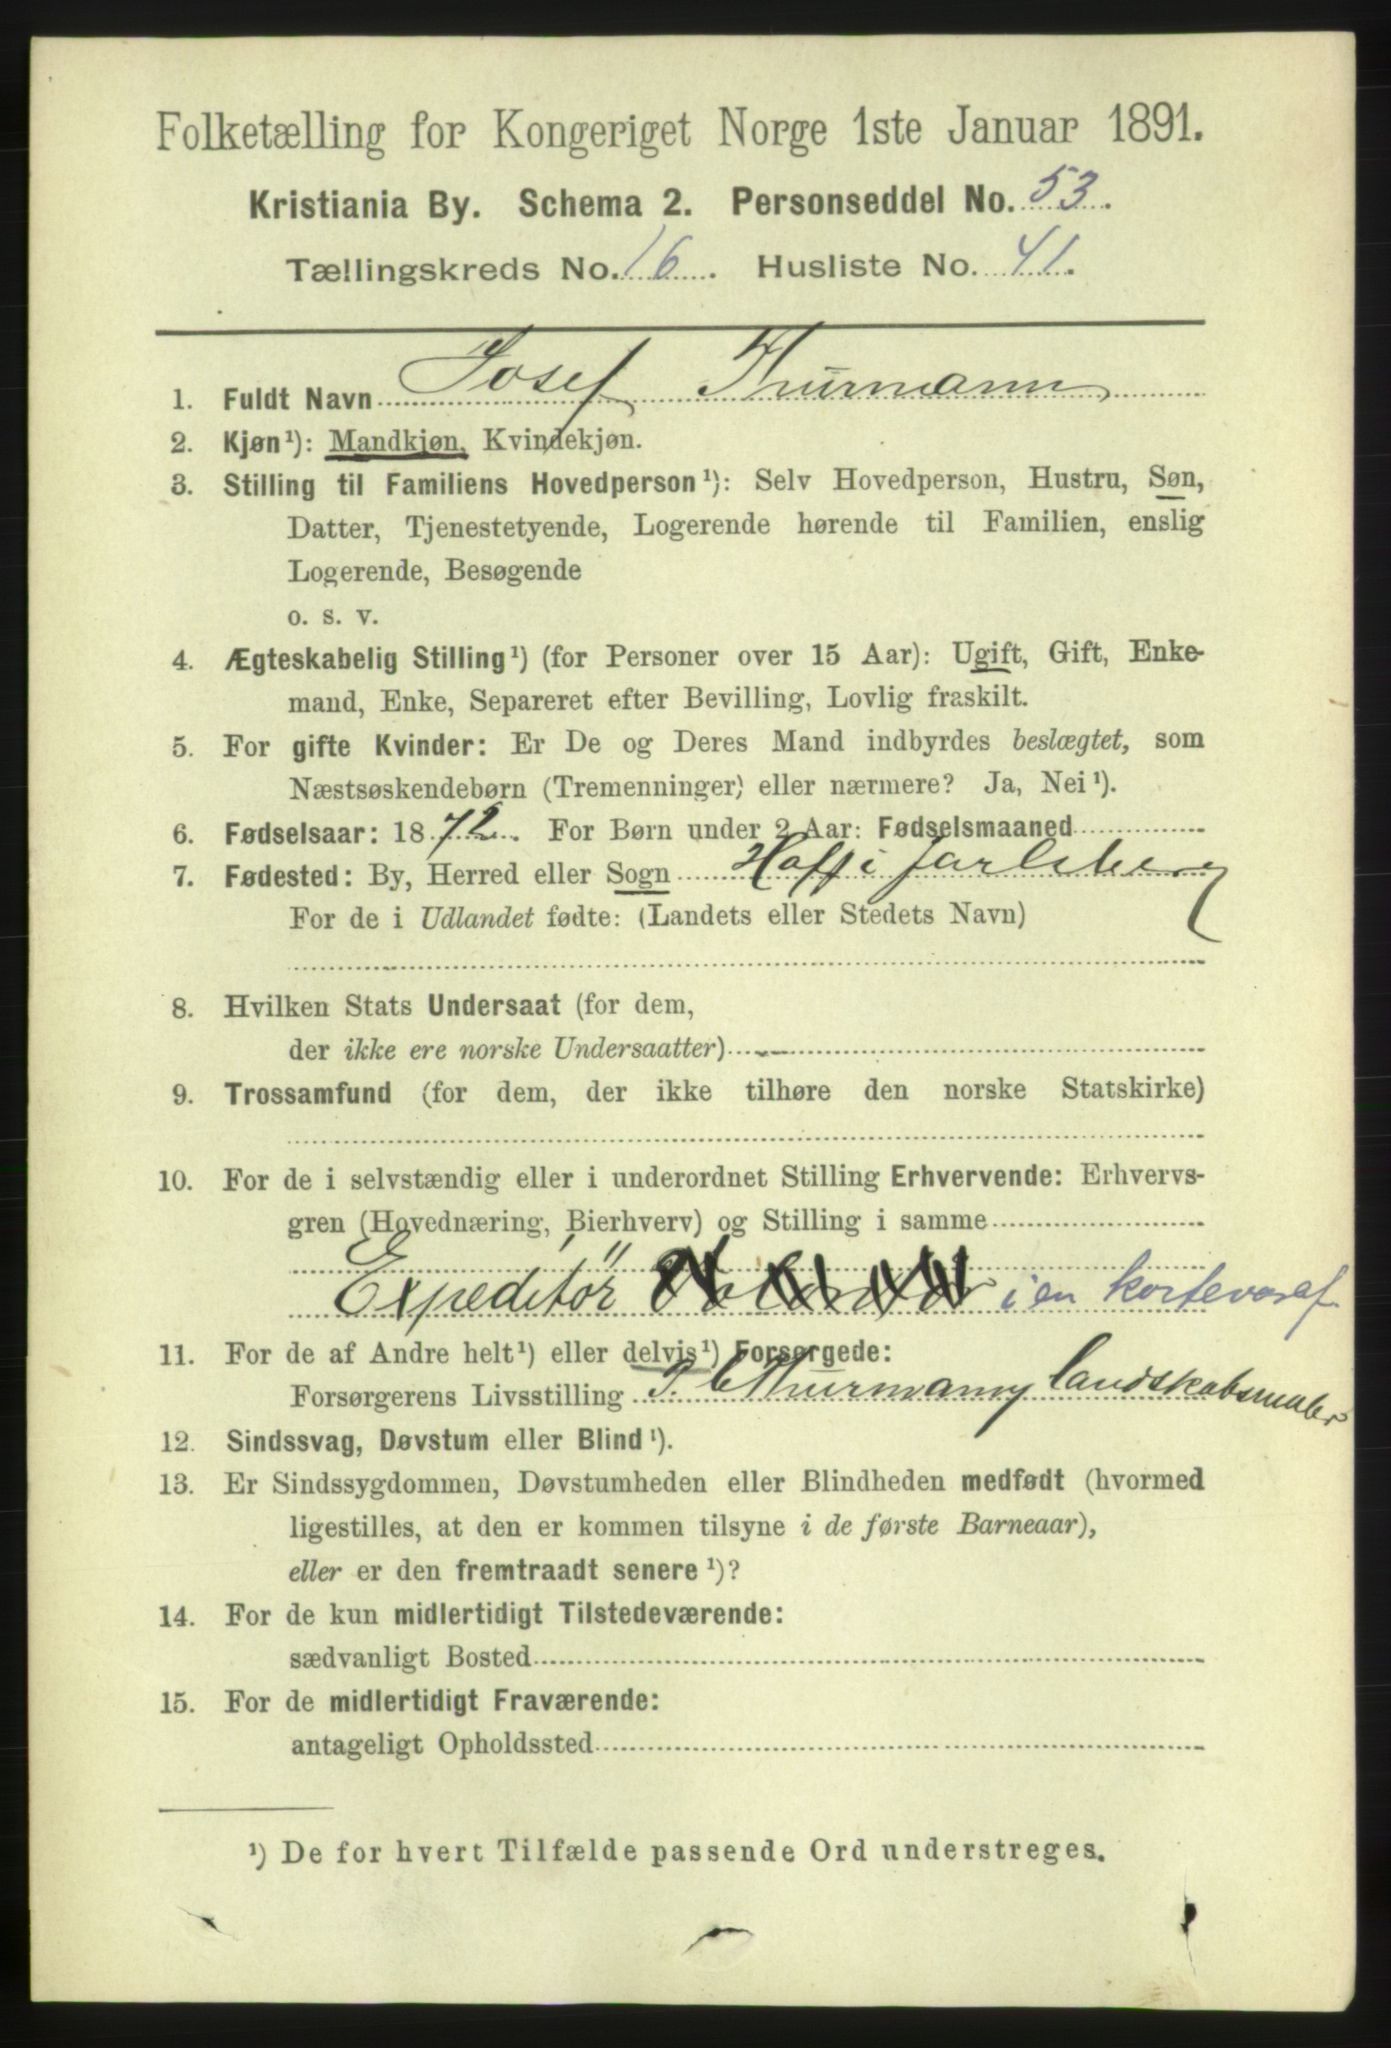 Folketælling for Kongeriget Norge 1ste Januar 1891.
Kristiania By. Schema 2. Personseddel No. 53.
Tællingskreds No. 16. Husliste No. 41.
1. Fuldt Navn Josef Thurmann
2. Kjøn¹): Mandkjøn, Kvindekjøn.
3. Stilling til Familiens Hovedperson¹): Selv Hovedperson, Hustru, Søn,
Datter, Tjenestetyende, Logerende hørende til Familien, enslig
Logerende, Besøgende
o. s. v.
4. Ægteskabelig Stilling¹) (for Personer over 15 Aar): Ugift, Gift, Enke-
mand, Enke, Separeret efter Bevilling, Lovlig fraskilt.
5. For gifte Kvinder: Er De og Deres Mand indbyrdes beslægtet, som
Næstsøskendebørn (Tremenninger) eller nærmere? Ja, Nei¹).
6. Fødselsaar: 1872. For Børn under 2 Aar: Fødselsmaaned
7. Fødested: By, Herred eller Sogn Hoff i Jarlsberg
For de i Udlandet fødte: (Landets eller Stedets Navn)
8. Hvilken Stats Undersaat (for dem,
der ikke ere norske Undersaatter)
9. Trossamfund (for dem, der ikke tilhøre den norske Statskirke)
10. For de i selvstændig eller i underordnet Stilling Erhvervende: Erhvervs-
gren (Hovednæring, Bierhverv) og Stilling i samme
Expeditør i en kortevaref.
11. For de af Andre helt¹) eller delvis¹) Forsørgede:
Forsørgerens Livsstilling P. Thurmann, Landskabsmaler
12. Sindssvag, Døvstum eller Blind¹).
13. Er Sindssygdommen, Døvstumheden eller Blindheden medfødt (hvormed
ligestilles, at den er kommen tilsyne i de første Barneaar),
eller er den fremtraadt senere¹)?
14. For de kun midlertidigt Tilstedeværende:
sædvanligt Bosted
15. For de midlertidigt Fraværende:
antageligt Opholdssted
¹) De for hvert Tilfælde passende Ord understreges.